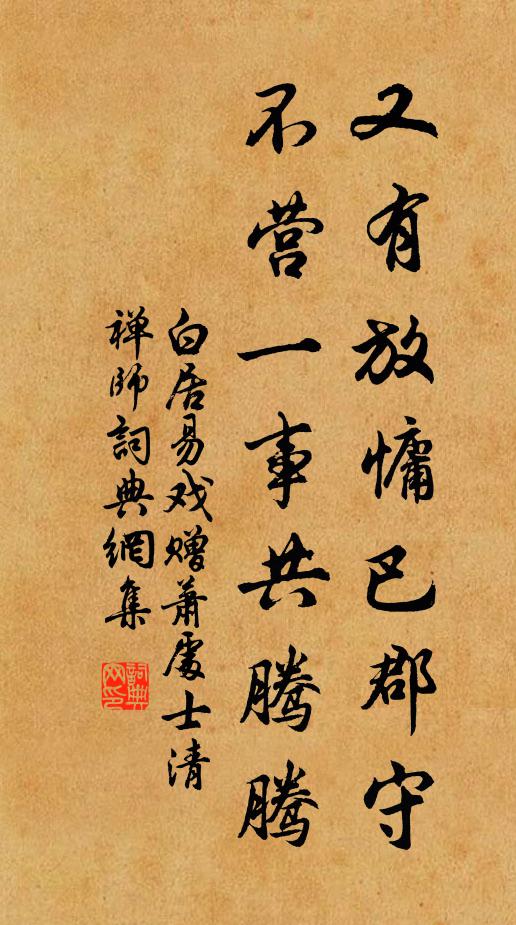 又有放慵巴郡守
不营一事共腾腾
白居易戏赠萧处士清
禅师词典網集
詞典网印